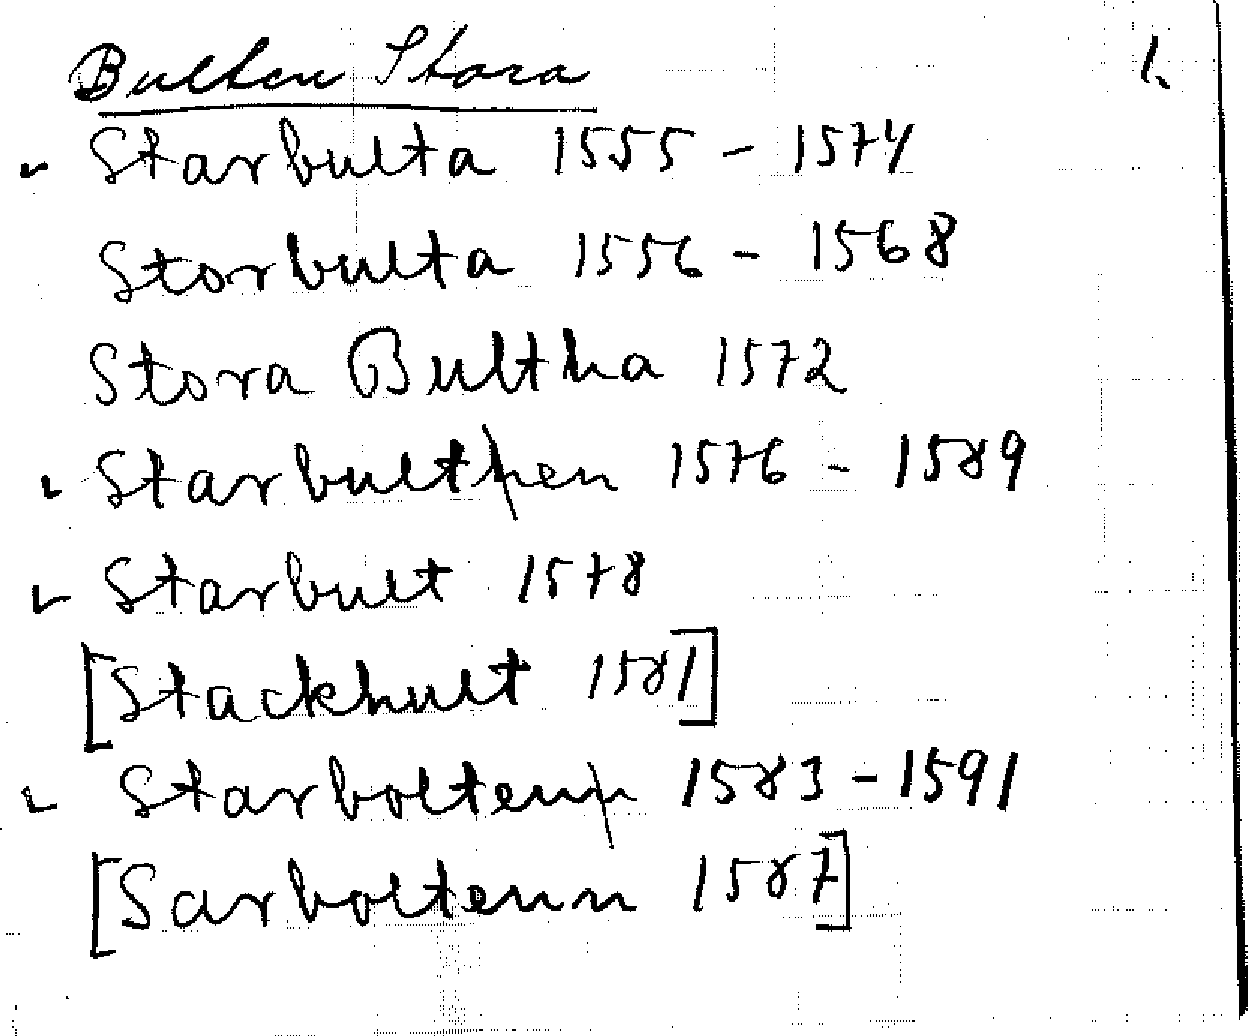 Bulten Stora 1.
Starbulta 1555 - 1574
Storbulta 1556 - 1568
Stora Bultha 1572
Starbulthen 1576 - 1589
Starbult 1578
[Stackhult 1581]
Starboltenn 1583 - 1591
[Sarboltenn 1587]